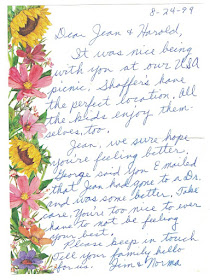 8-24-99
Dear Jean & Harold,
It was nice being
with you at our USA
picnic. Shaffers have
the perfect location. All
the kids enjoy them-
selves, too.
Jean, we sure hope
you're feeling better.
George said you Emailed
that Jean had gone to a Dr.
and was some better. Take
care. You're too nice to ever
have to not be feeling
your best.
Please keep in touch
Tell your family hello
for us. Jim & Norma